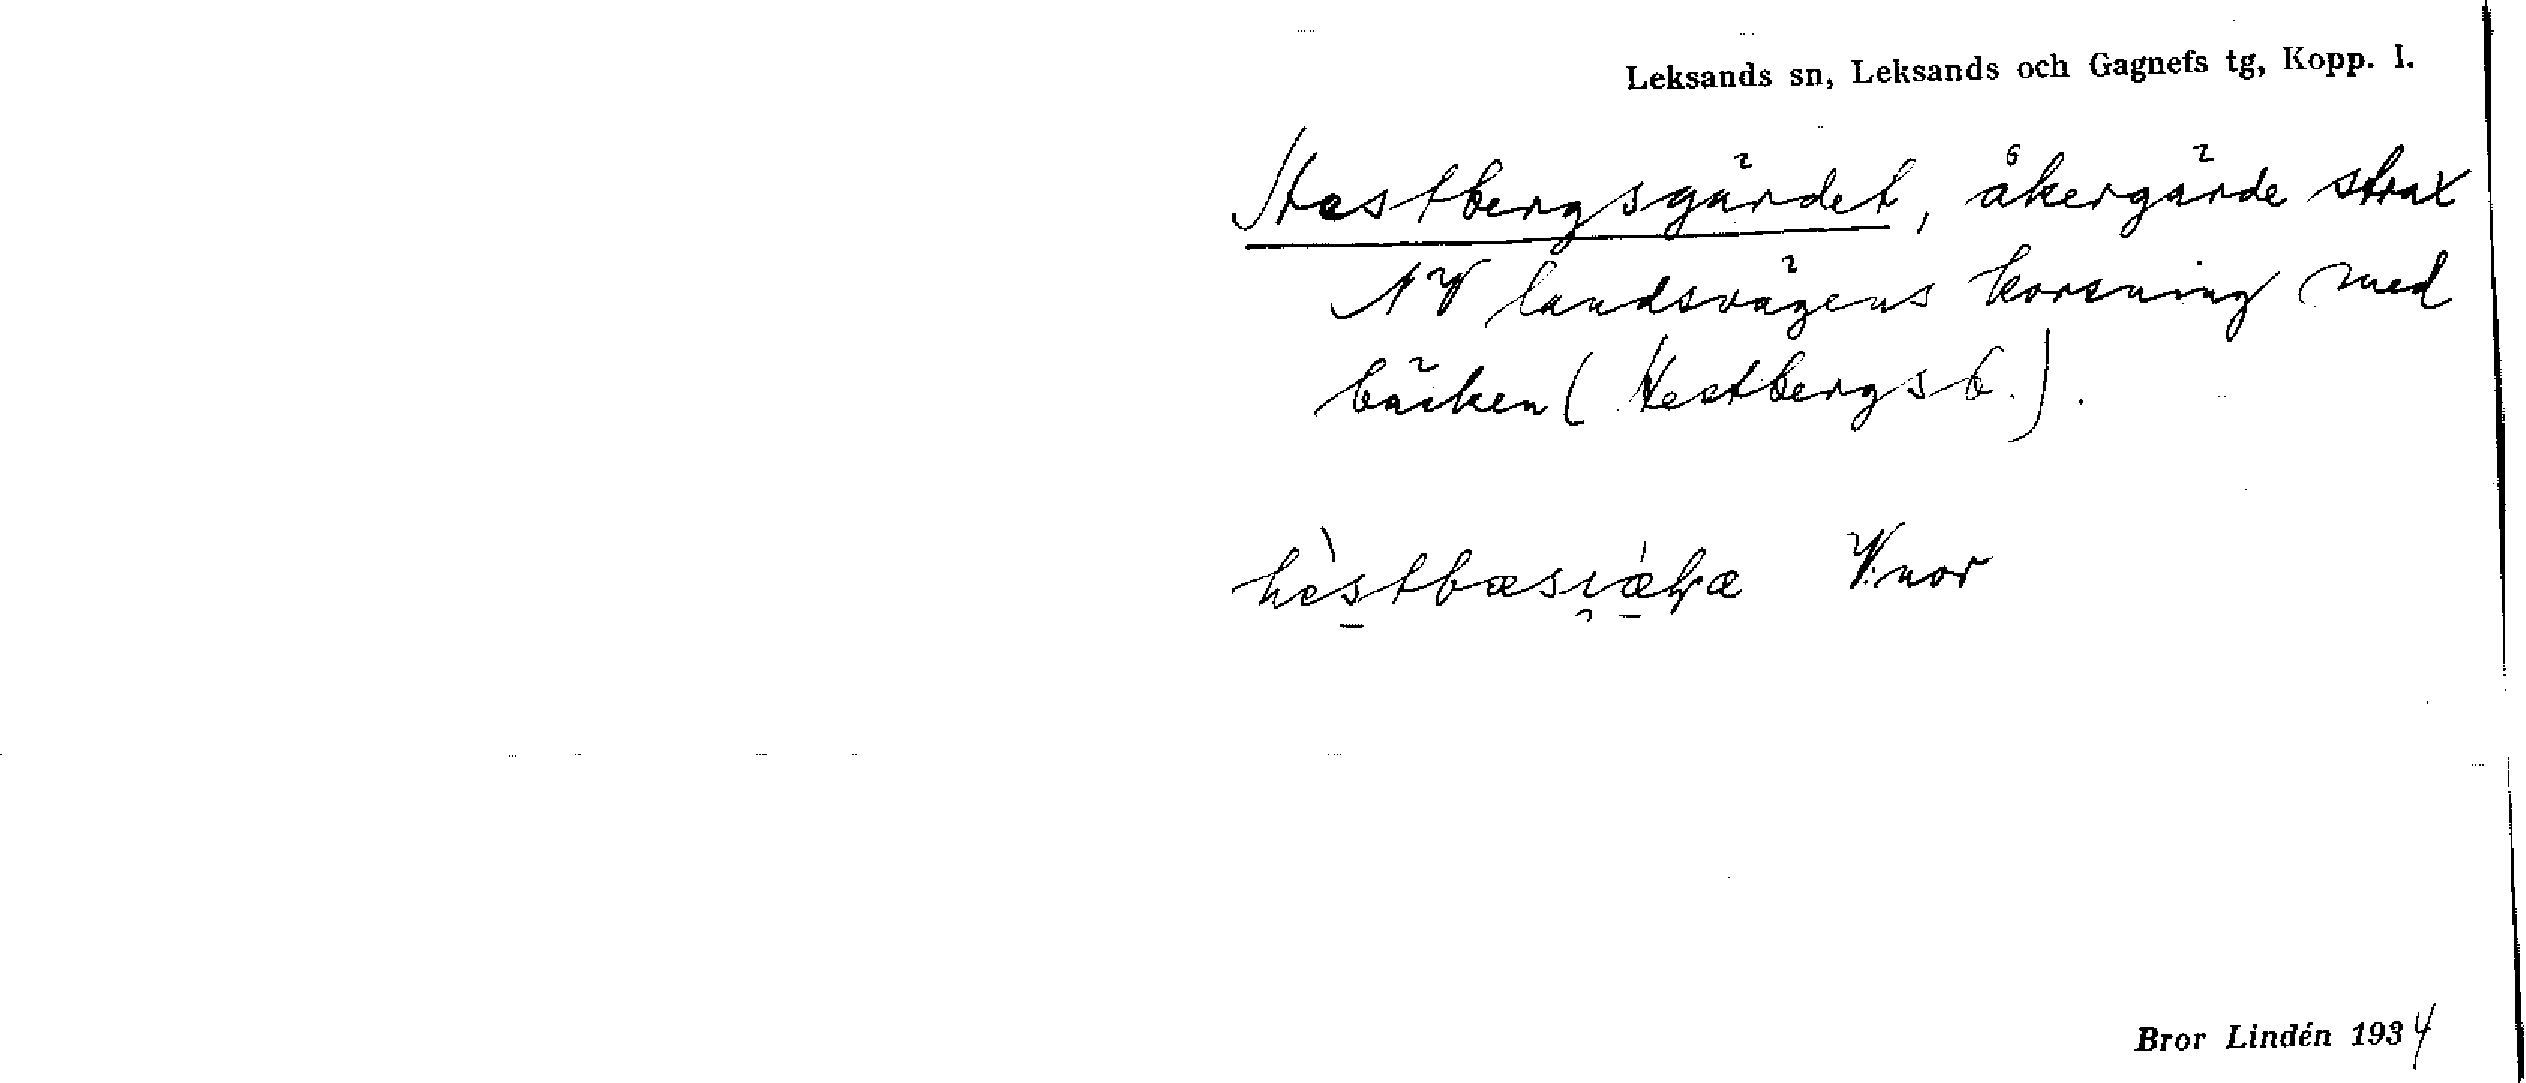 Leksands sn, Leksands och Gagnefs tg, Kopp. l.
Hestbergsgärdet, åkergärde strax
NV landsvägens korsning med
bäcken (Hestbergsb.).
V:nor
Bror Lindén 1934